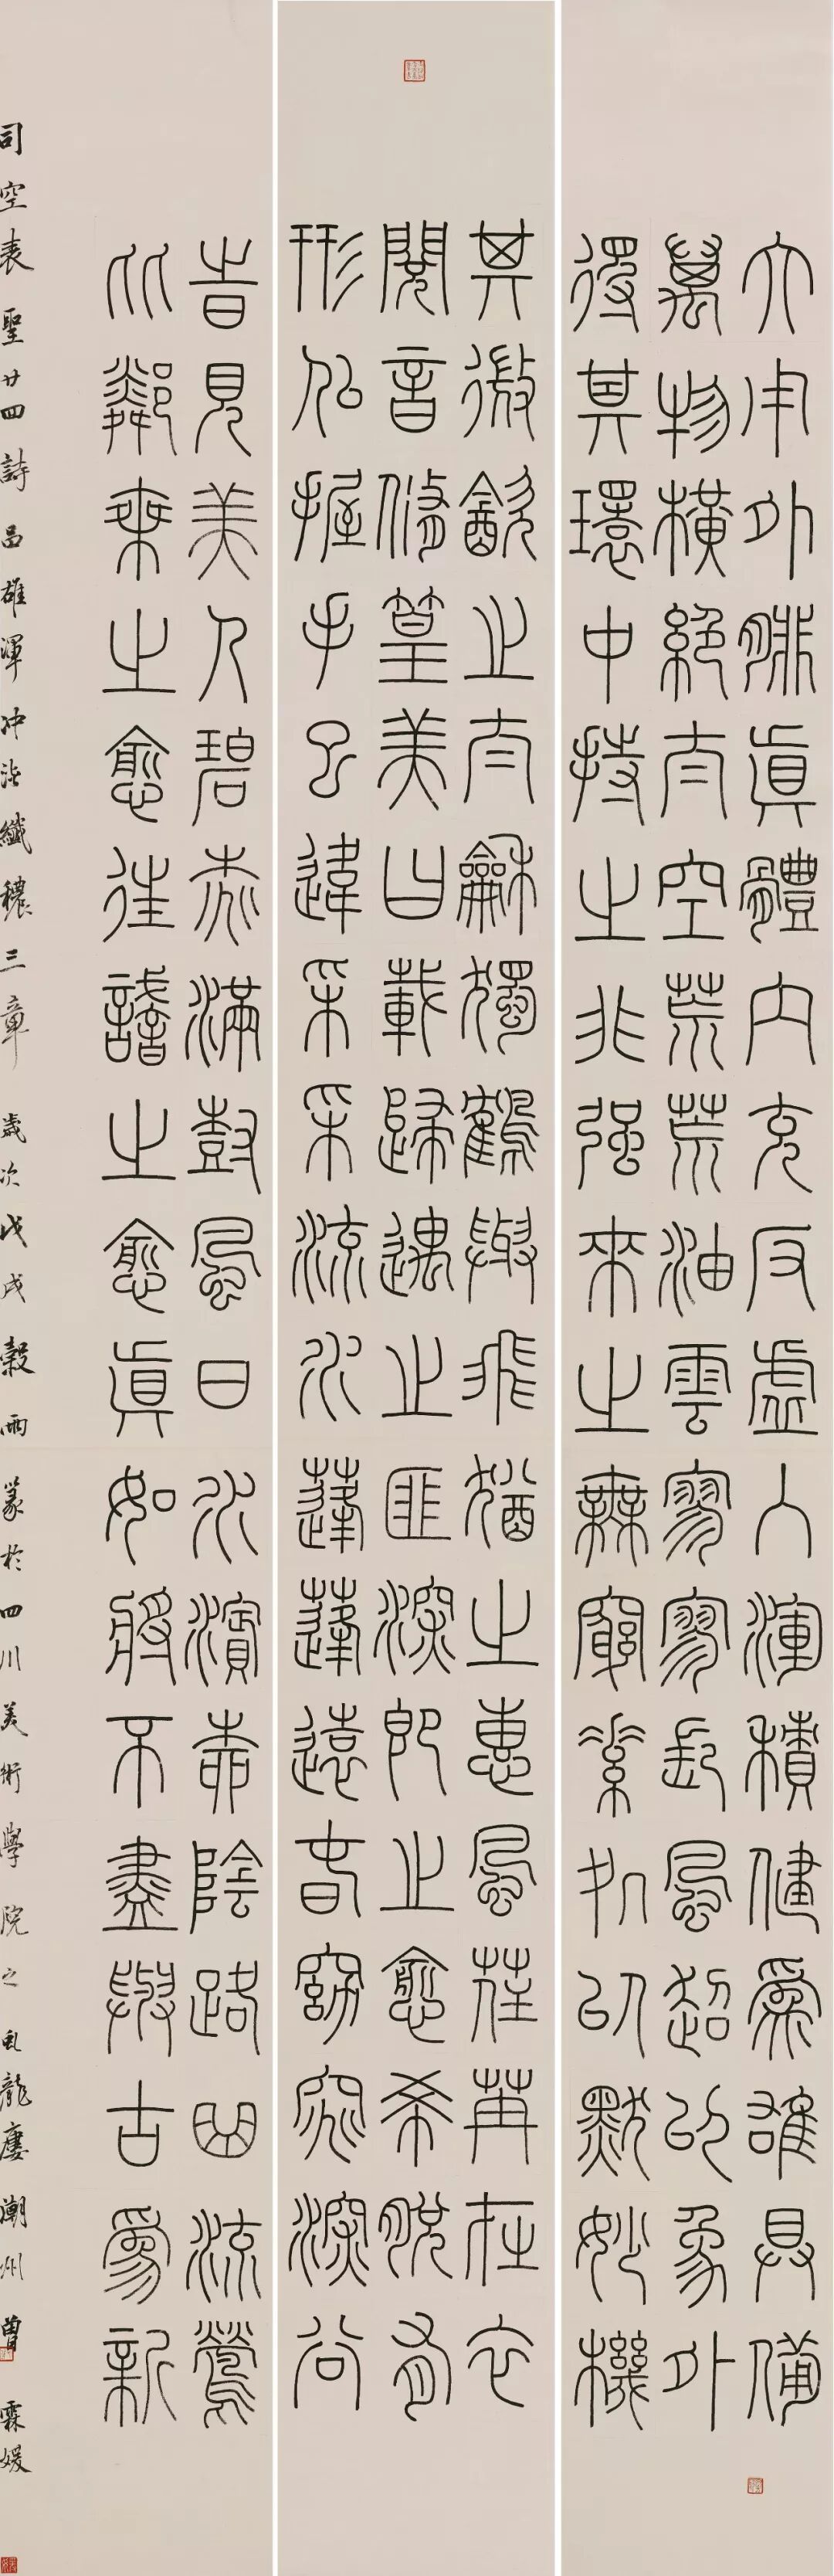 大用外腓眞體內充反虛入渾積健爲雄具備
萬物橫絕太空荒荒油雲寥寥長風超以象外
得其環中持之非強來之無窮素處以默妙機
其微飲之太和獨鶴與飛猶之惠風荏苒在衣
閱音修篁美曰載歸遇之匪深即之愈希脫有
形似握手已違采采流水蓬蓬遠春窈窕深谷
時見美人碧桃滿樹風日水濱柳陰路曲流鶯
比鄰乘之愈往識之愈眞如將不盡與古爲新
司空表聖廿四詩品雄渾沖淡纖穠三章 歲次戊戌穀雨篆於四川美術學院之虬龍廔潮州曾霖媛